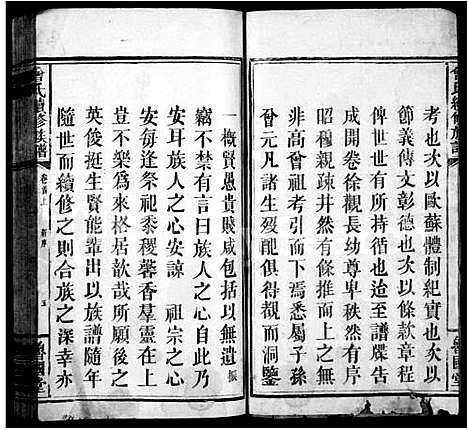 曾氏續修族譜
魯國堂
考也次以歐蘇體制紀實也次以
節義傳文彰德也次以條款章程
俾後世有所持循也迨至譜牒告
成開卷幼尊卑秩然有條而
昭穆親疎井然有條推而上之
非高而下焉悉屬子孫
曾元凡諸生列觀而洞鑒
一概賢愚貴賤咸包括以無遺振
竊不禁有言曰族人之心自此乃
安耳族人之心安諒 祖宗之心
亦安每逢祭祀黍稷馨香羣靈在上
豈不樂爲來格居歆哉所願後之
英俊挺出以族譜隨年
隨世而續修之則合族之深幸亦
曾氏續修族譜
卷首上
新序
五
魯國堂